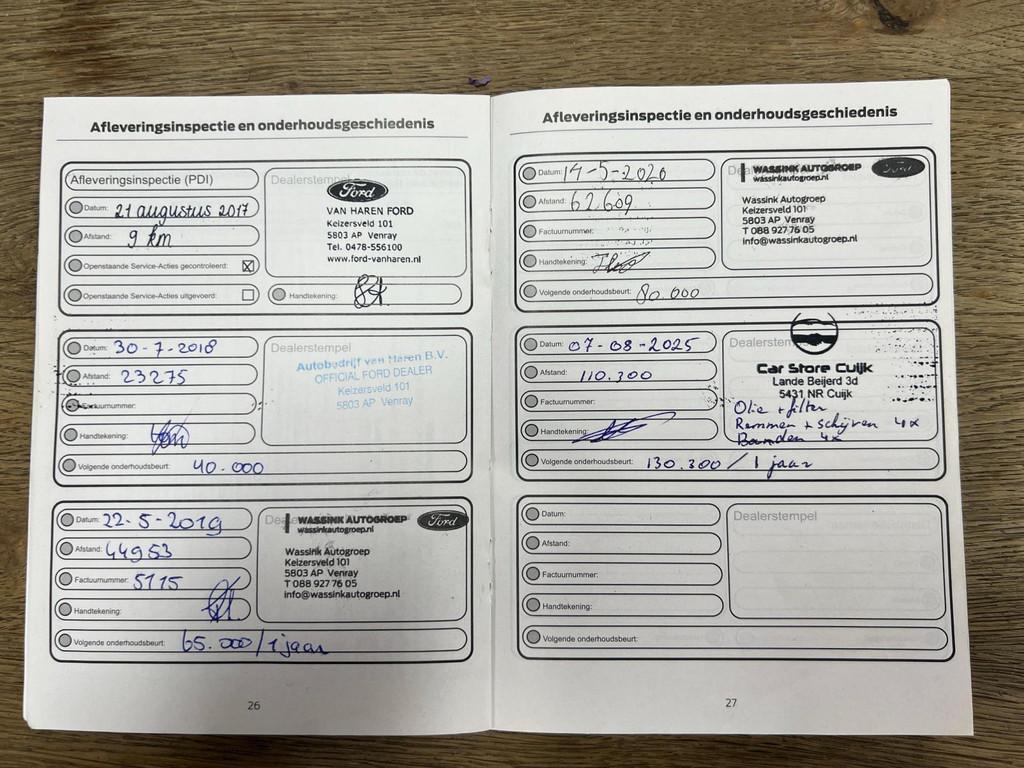 Afleveringsinspectie en onderhoudsgeschiedenis
Afleveringsinspectie (PDI)
Datum: 21 augustus 2017
Afstand: 9 km
Openstaande Service-Acties gecontroleerd:
Openstaande Service-Acties uitgevoerd:
Dealerstempel
Ford
VAN HAREN FORD
Keizersveld 101
5803 AP Venray
Tel. 0478-556100
www.ford-vanharen.nl
Handtekening:
Datum: 30-7-2018
Afstand: 23275
Factuurnummer:
Handtekening:
Volgende onderhoudsbeurt: 40.000
Dealerstempel
Autobedrijf van Haren B.V.
OFFICIAL FORD DEALER
Keizersveld 101
5803 AP Venray
Datum: 22-5-2019
Afstand: 44953
Factuurnummer: 5115
Handtekening:
Volgende onderhoudsbeurt: 65.000/1 jaar
WASSINK AUTOGROEP
wassinkautogroep.nl
Ford
Wassink Autogroep
Keizersveld 101
5803 AP Venray
T 088 927 76 05
info@wassinkautogroep.nl
26
Afleveringsinspectie en onderhoudsgeschiedenis
Datum: 14-5-2020
Afstand: 62609
Factuurnummer:
Handtekening:
Volgende onderhoudsbeurt: 80.000
WASSINK AUTOGROEP
wassinkautogroep.nl
Ford
Wassink Autogroep
Keizersveld 101
5803 AP Venray
T 088 927 76 05
info@wassinkautogroep.nl
Datum: 07-08-2025
Afstand: 110.300
Factuurnummer:
Handtekening:
Volgende onderhoudsbeurt: 130.300 / 1 jaar
Car Store Cuijk
Lande Beijerd 3d
5431 NR Cuijk
Olie + filter
Remmen + schijven 4x
Banden 4x
Datum:
Afstand:
Factuurnummer:
Handtekening:
Volgende onderhoudsbeurt:
Dealerstempel
27